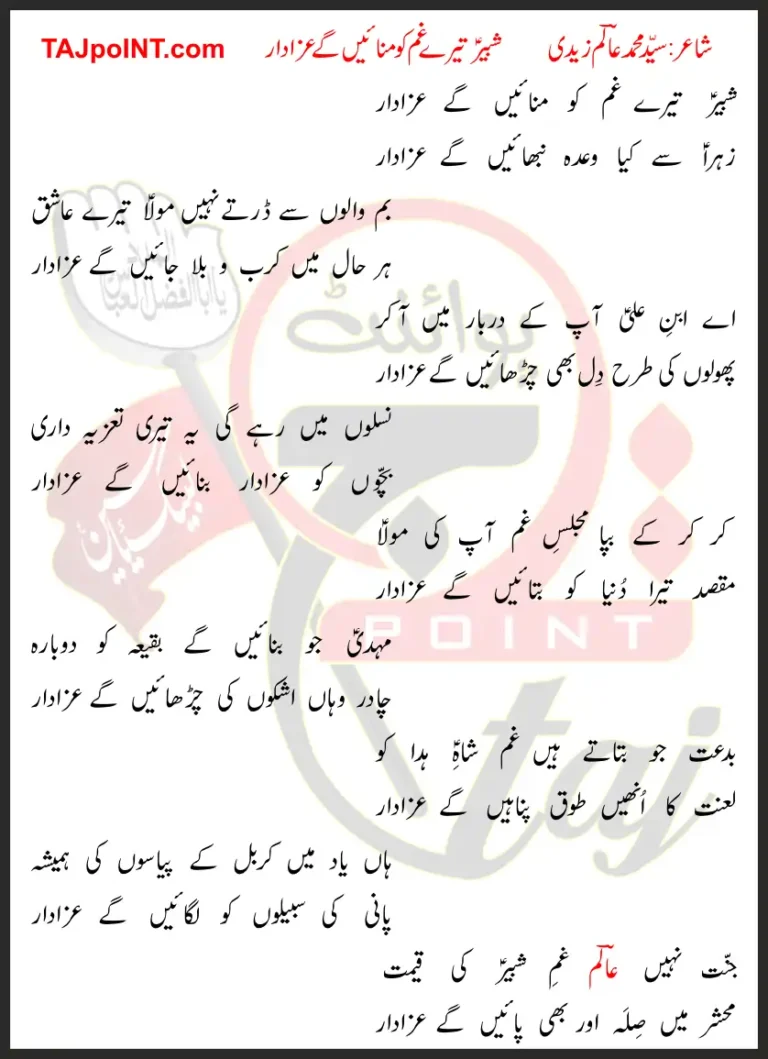 شاعر: سیّد محمد عالؔم زیدی شبیرؑ تیرے غم کو منائیں گے عزادار TAJpoINT.com
شبیرؑ تیرے غم کو منائیں گے عزادار
زہراؑ سے کیا وعدہ نبھائیں گے عزادار
بم والوں سے ڈرتے نہیں مولاؑ تیرے عاشق
ہر حال میں کرب و بلا جائیں گے عزادار
اے ابنِ علیؑ آپ کے دربار میں آ کر
پھولوں کی طرح دِل بھی چڑھائیں گے عزادار
نسلوں میں رہے گی یہ تیری تعزیہ داری
بچّوں کو عزادار بنائیں گے عزادار
کر کر کے بپا مجلسِ غم آپ کی مولاؑ
مقصد تیرا دُنیا کو بتائیں گے عزادار
مہدیؑ جو بنائیں گے بقیعہ کو دوبارہ
چادر وہاں اشکوں کی چڑھائیں گے عزادار
بدعت جو بتاتے ہیں غم شاہِؑ ہدا کو
لعنت کا اُنھیں طوق پناہیں گے عزادار
ہاں یاد میں کربل کے پیاسوں کی ہمیشہ
پانی کی سبیلوں کو لگائیں گے عزادار
جنّت نہیں عالؔم غمِ شبیرؑ کی قیمت
محشر میں صِلَہ اور بھی پائیں گے عزادار
پوائنٹ
تاج
POINT
taj
یا ابا الفضل العباس
لبیک یا حسین